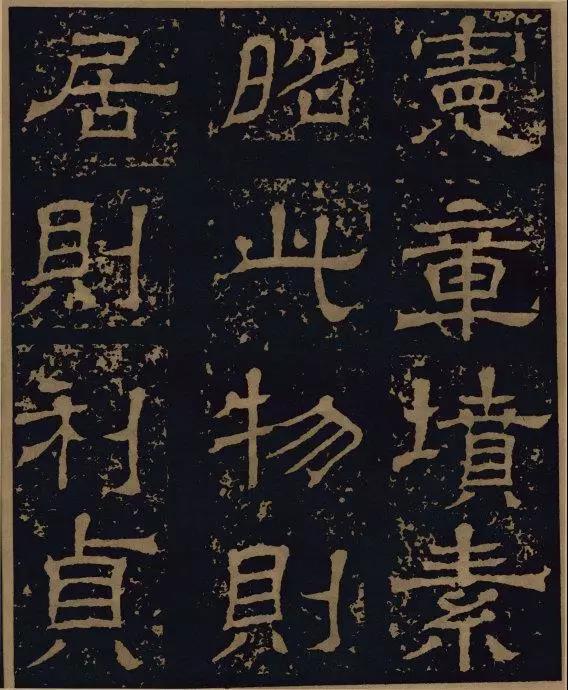 憲章墳素
昭此物則
居則利貞